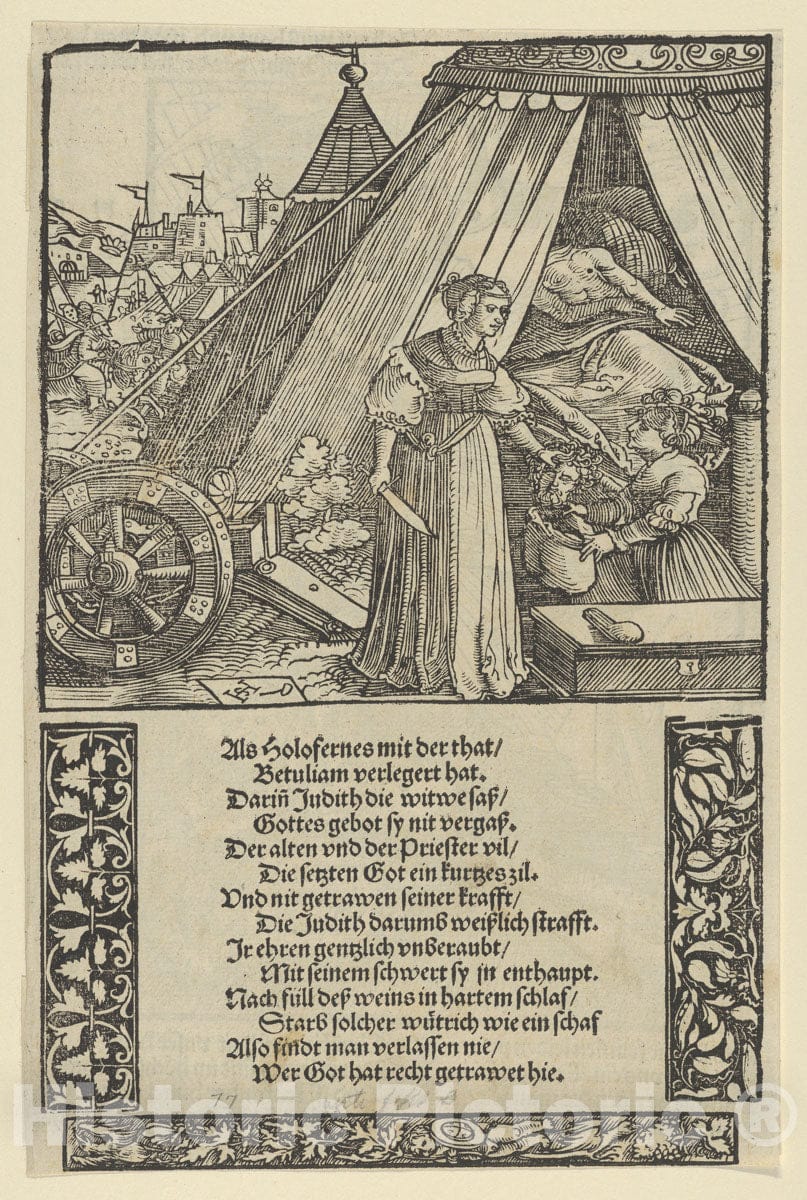 Als Holofernes mit der that/
Betuliam verlegert hat.
Dariñ Judith die witwe saß/
Gottes gebot sy nit vergaß.
Der alten vnd der Priester vil/
Die setzten Got ein kurtzes zil.
Vnd nit getrawen seiner krafft/
Die Judith darumb weißlich strafft.
Jr ehren gentzlich vnberaubt/
Mit seinem schwert sy jn enthaupt.
Nach füll deß weins in hartem schlaf/
Starb solcher wütrich wie ein schaf
Also findt man verlassen nie/
Wer Got hat recht getrawet hie.
77
Historic Pictoric ®